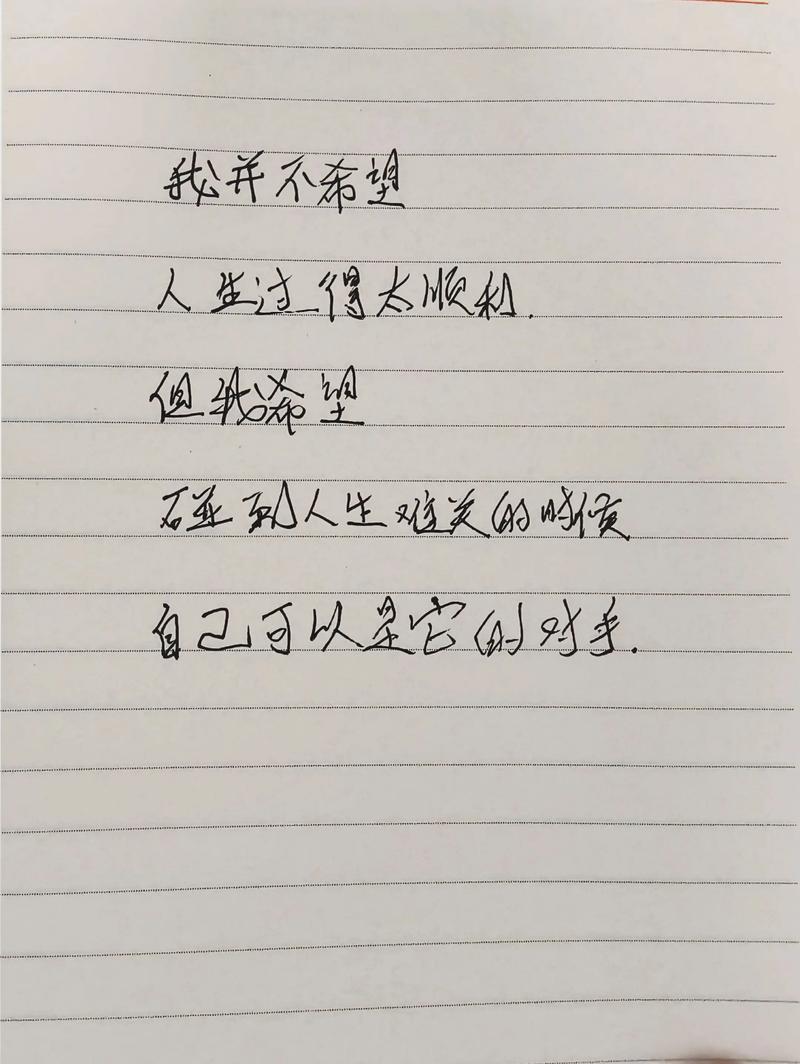 我并不希望
人生过得太顺利.
但我希望
碰到人生难关的时候
自己可以是它的对手.